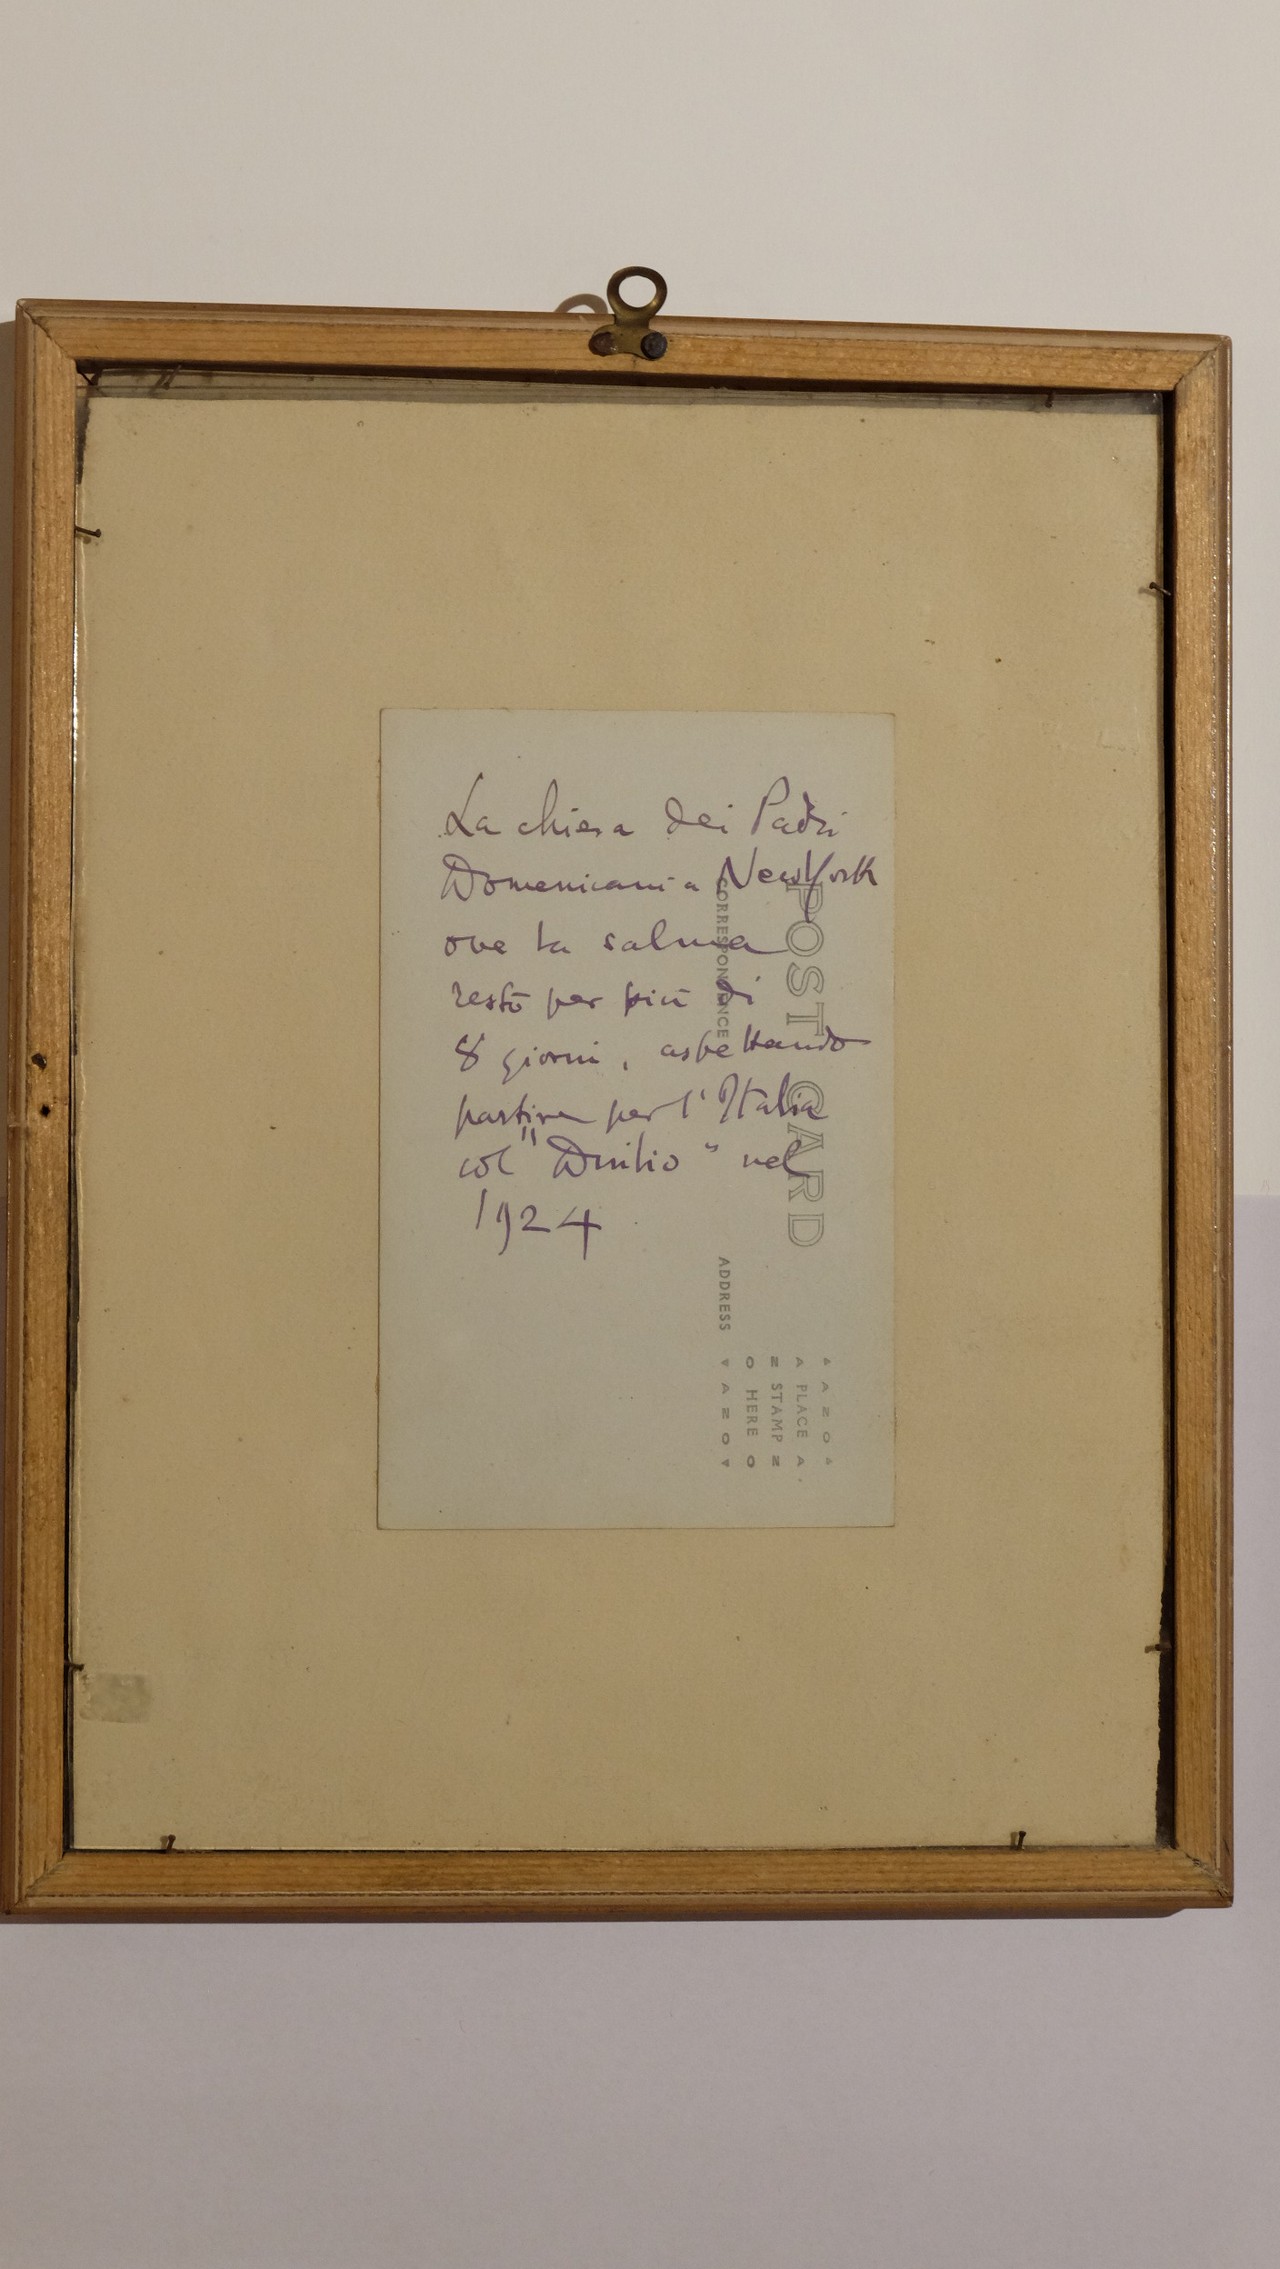 La chiesa dei Padri
Domenicani a New York
ove la salma
restò per più di
8 giorni, aspettando
partire per l'Italia
col "Duilio" nel
1924
POST CARD
CORRESPONDENCE
ADDRESS
▲ A Z O ▲
A PLACE A
Z STAMP Z
O HERE O
▼ A Z O ▼